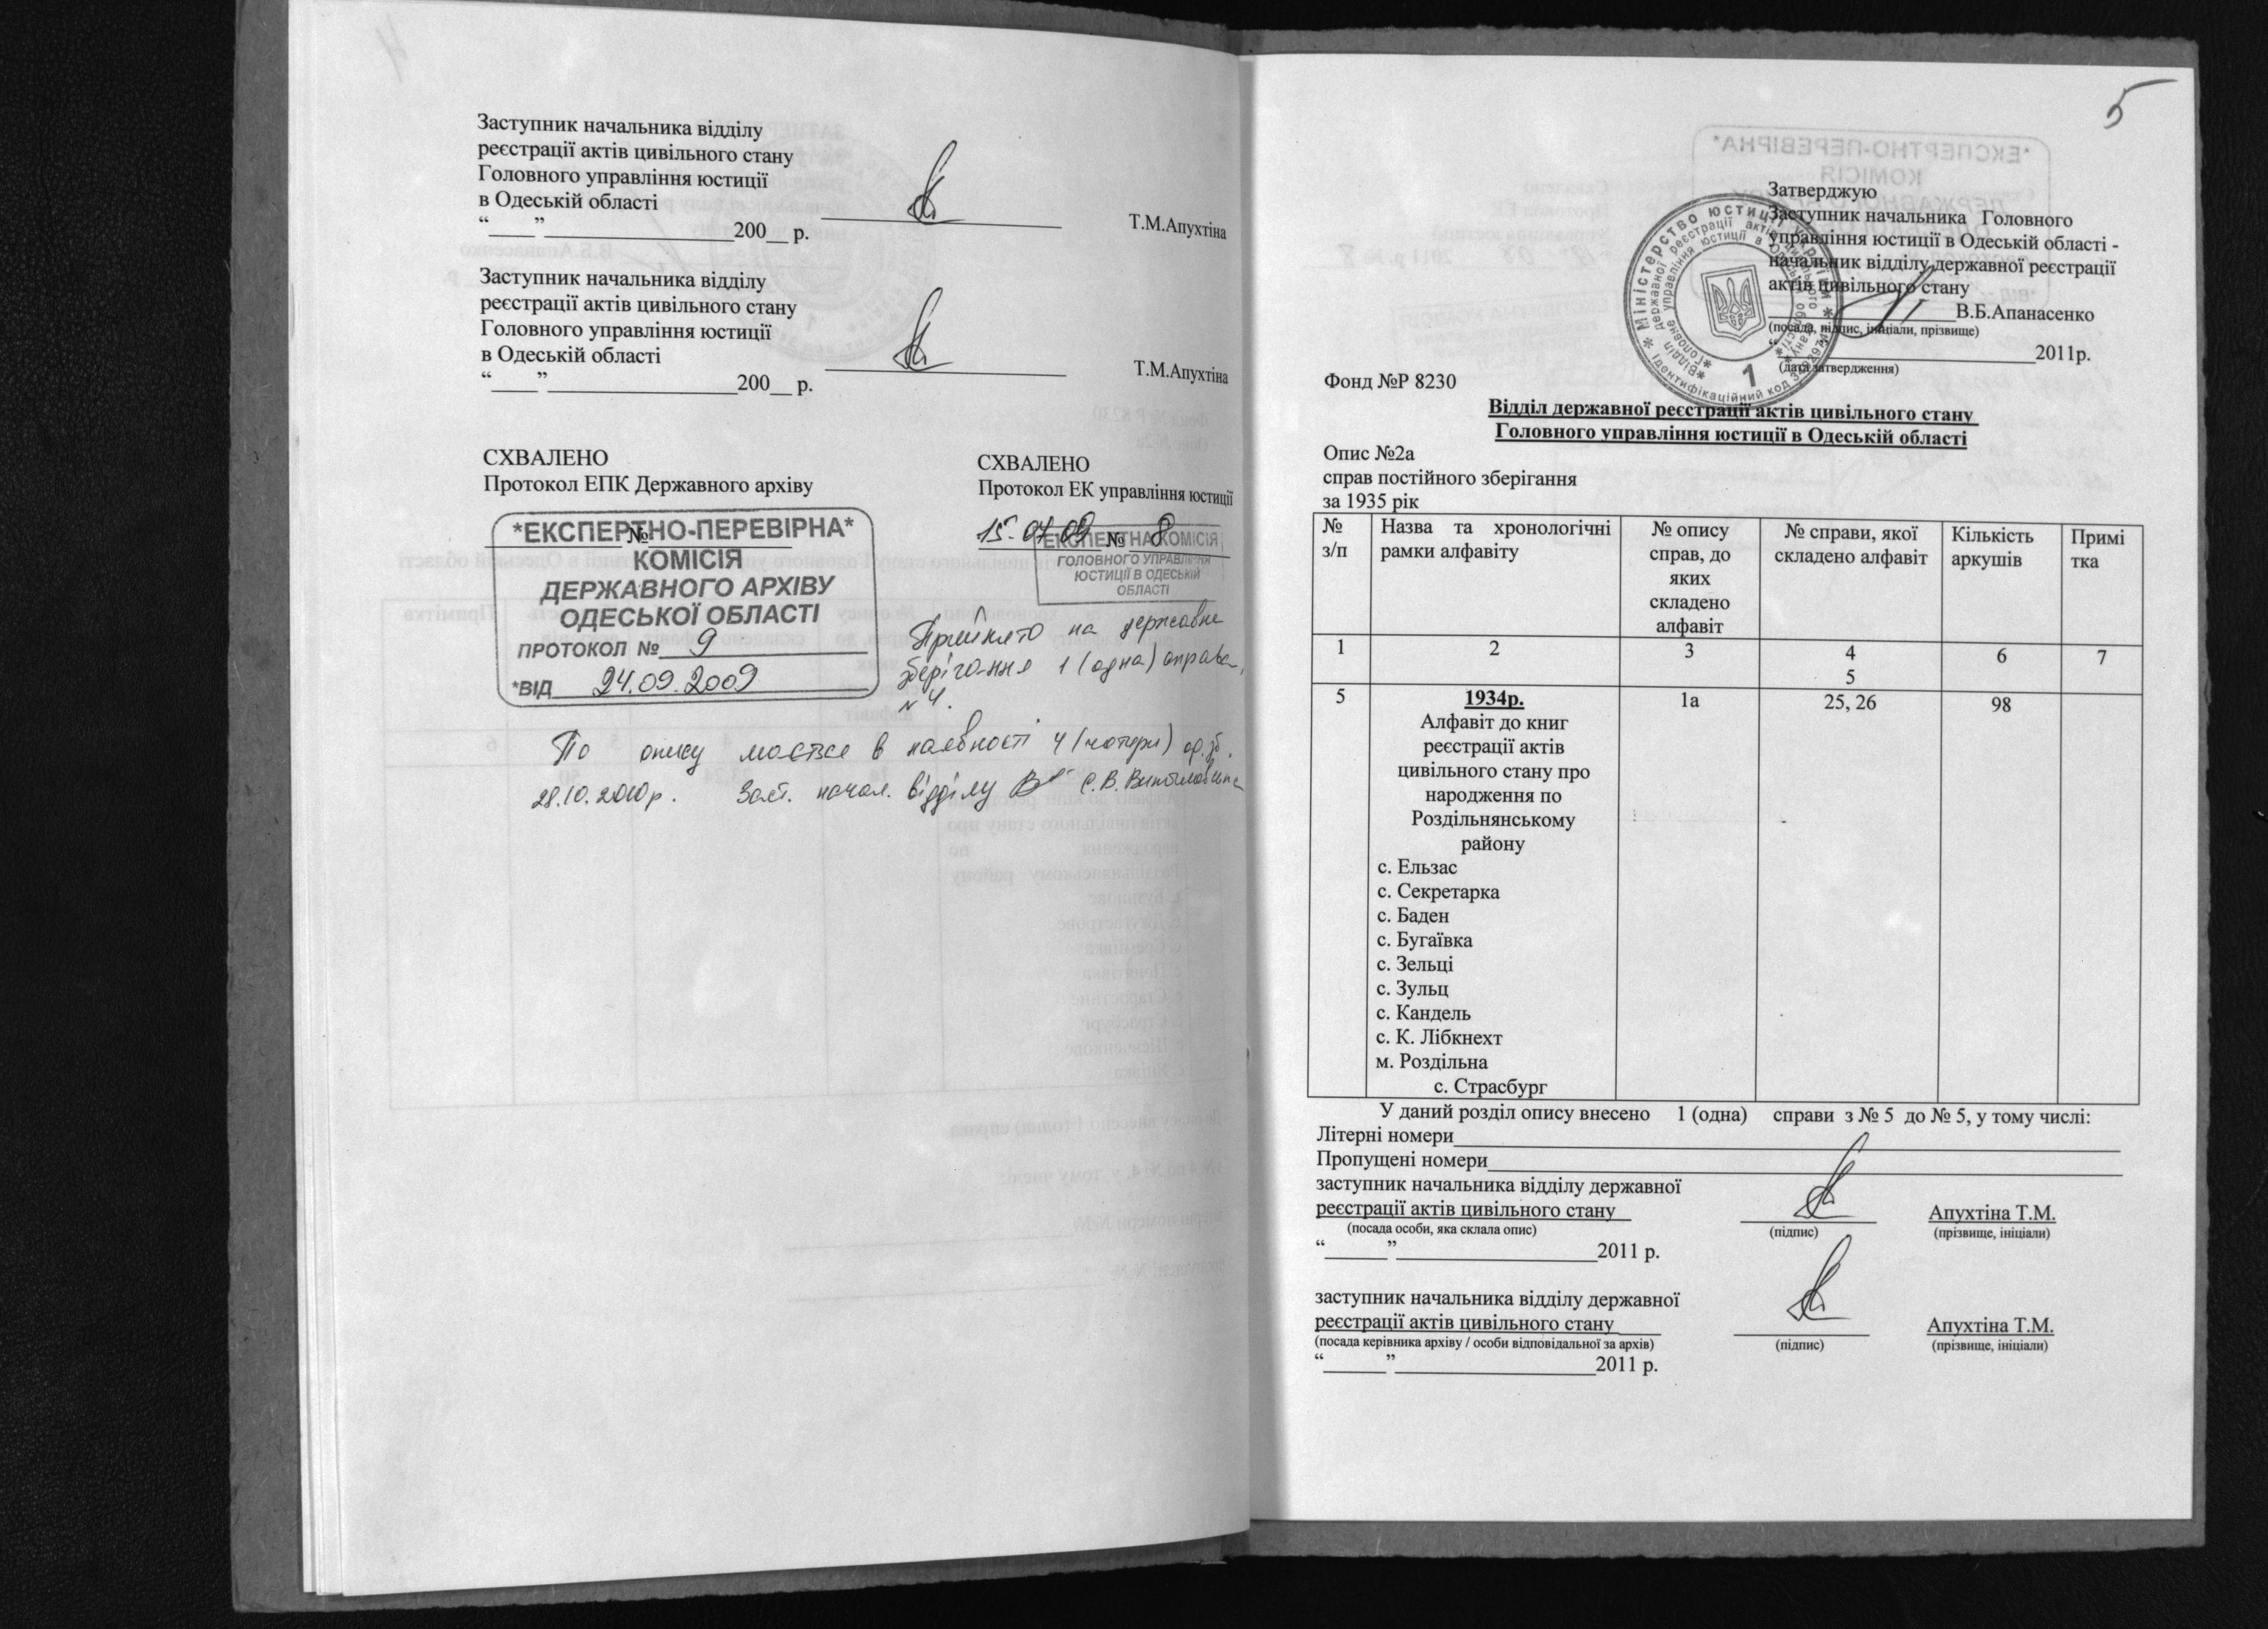 Заступник начальника відділу
реєстрації актів цивільного стану
Головного управління юстиції
в Одеській області
“____”_________________200__ р.
Т.М.Апухтіна
Заступник начальника відділу
реєстрації актів цивільного стану
Головного управління юстиції
в Одеській області
“____”_________________200__ р.
Т.М.Апухтіна
СХВАЛЕНО
Протокол ЕПК Державного архіву
№
*ЕКСПЕРТНО-ПЕРЕВІРНА*
КОМІСІЯ
ДЕРЖАВНОГО АРХІВУ
ОДЕСЬКОЇ ОБЛАСТІ
ПРОТОКОЛ № 9
*ВІД 24.09.2009
СХВАЛЕНО
Протокол ЕК управління юстиції
15.07.09 № 8
ЕКСПЕРТНА КОМІСІЯ
ГОЛОВНОГО УПРАВЛІННЯ
ЮСТИЦІЇ В ОДЕСЬКІЙ
ОБЛАСТІ
Прийнято на державне
зберігання 1 (одна) справа,
№ 4.
По опису мається в наявності 4 (чотири) од.зб.
28.10.2010р. Заст. начал. відділу
5
Затверджую
Заступник начальника Головного
управління юстиції в Одеській області -
начальник відділу державної реєстрації
актів цивільного стану
В.Б.Апанасенко
(посада, підпис, ініціали, прізвище)
“ 2011р.
(дата затвердження)
* Міністерство юстиції України *
Ідентифікаційний код
*Відділ державної реєстрації актів цивільного стану*
*Головне управління юстиції в Одеській області*
1
Фонд №Р 8230
Відділ державної реєстрації актів цивільного стану
Головного управління юстиції в Одеській області
Опис №2а
справ постійного зберігання
за 1935 рік
№ з/п
Назва та хронологічні
рамки алфавіту
№ опису
справ, до
яких
складено
алфавіт
№ справи, якої
складено алфавіт
Кількість
аркушів
Примі
тка
1 2 3 4 6 7
5
5 1934р. 1а 25, 26 98
Алфавіт до книг
реєстрації актів
цивільного стану про
народження по
Роздільнянському
району
с. Ельзас
с. Секретарка
с. Баден
с. Бугаївка
с. Зельці
с. Зульц
с. Кандель
с. К. Лібкнехт
м. Роздільна
с. Страсбург
У даний розділ опису внесено 1 (одна) справи з № 5 до № 5, у тому числі:
Літерні номери
Пропущені номери
заступник начальника відділу державної
реєстрації актів цивільного стану
Апухтіна Т.М.
(посада особи, яка склала опис) (підпис) (прізвище, ініціали)
“______”____________________2011 р.
заступник начальника відділу державної
реєстрації актів цивільного стану
Апухтіна Т.М.
(посада керівника архіву / особи відповідальної за архів) (підпис) (прізвище, ініціали)
“______”____________________2011 р.